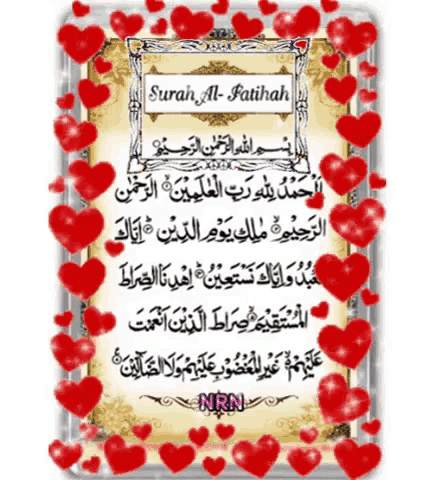 Surah Al-Fatihah
بِسْمِ اللهِ الرَّحْمٰنِ الرَّحِيْمِ
اَلْحَمْدُ لِلّٰهِ رَبِّ الْعٰلَمِيْنَ ۙ الرَّحْمٰنِ
الرَّحِيْمِ ۙ مٰلِكِ يَوْمِ الدِّيْنِ ؕ اِيَّاكَ
نَعْبُدُ وَاِيَّاكَ نَسْتَعِيْنُ ؕ اِهْدِنَا الصِّرَاطَ
الْمُسْتَقِيْمَ ۙ صِرَاطَ الَّذِيْنَ اَنْعَمْتَ
عَلَيْهِمْ ۙ غَيْرِ الْمَغْضُوْبِ عَلَيْهِمْ وَلَا الضَّآلِّيْنَ
NRN